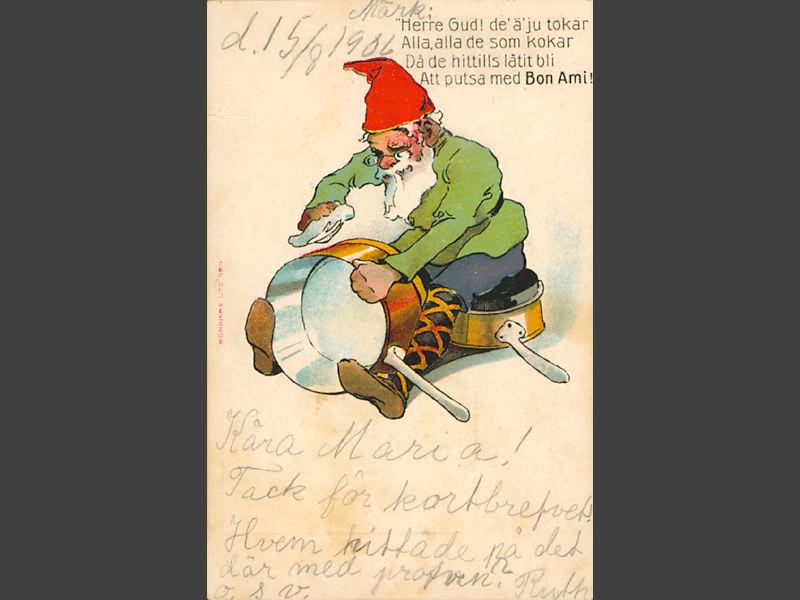 Märk:
d. 15/8 1906
"Herre Gud! de' ä' ju tokar
Alla, alla de som kokar
Då de hittills låtit bli
Att putsa med Bon Ami!
Kära Maria!
Tack för kortbrefvet.
Hvem hittade på det
där med profven?
o. s. v. Ruth